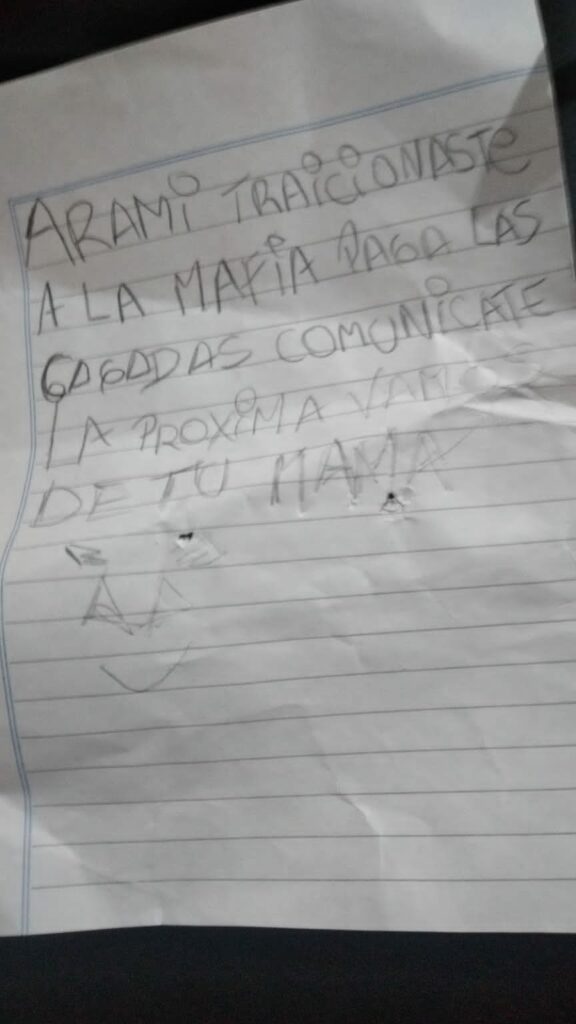 ARAMI TRAICIONASTE
A LA MAFIA PAGA LAS
CAGADAS COMUNICATE
LA PROXIMA VAMOS
DE TU MAMA